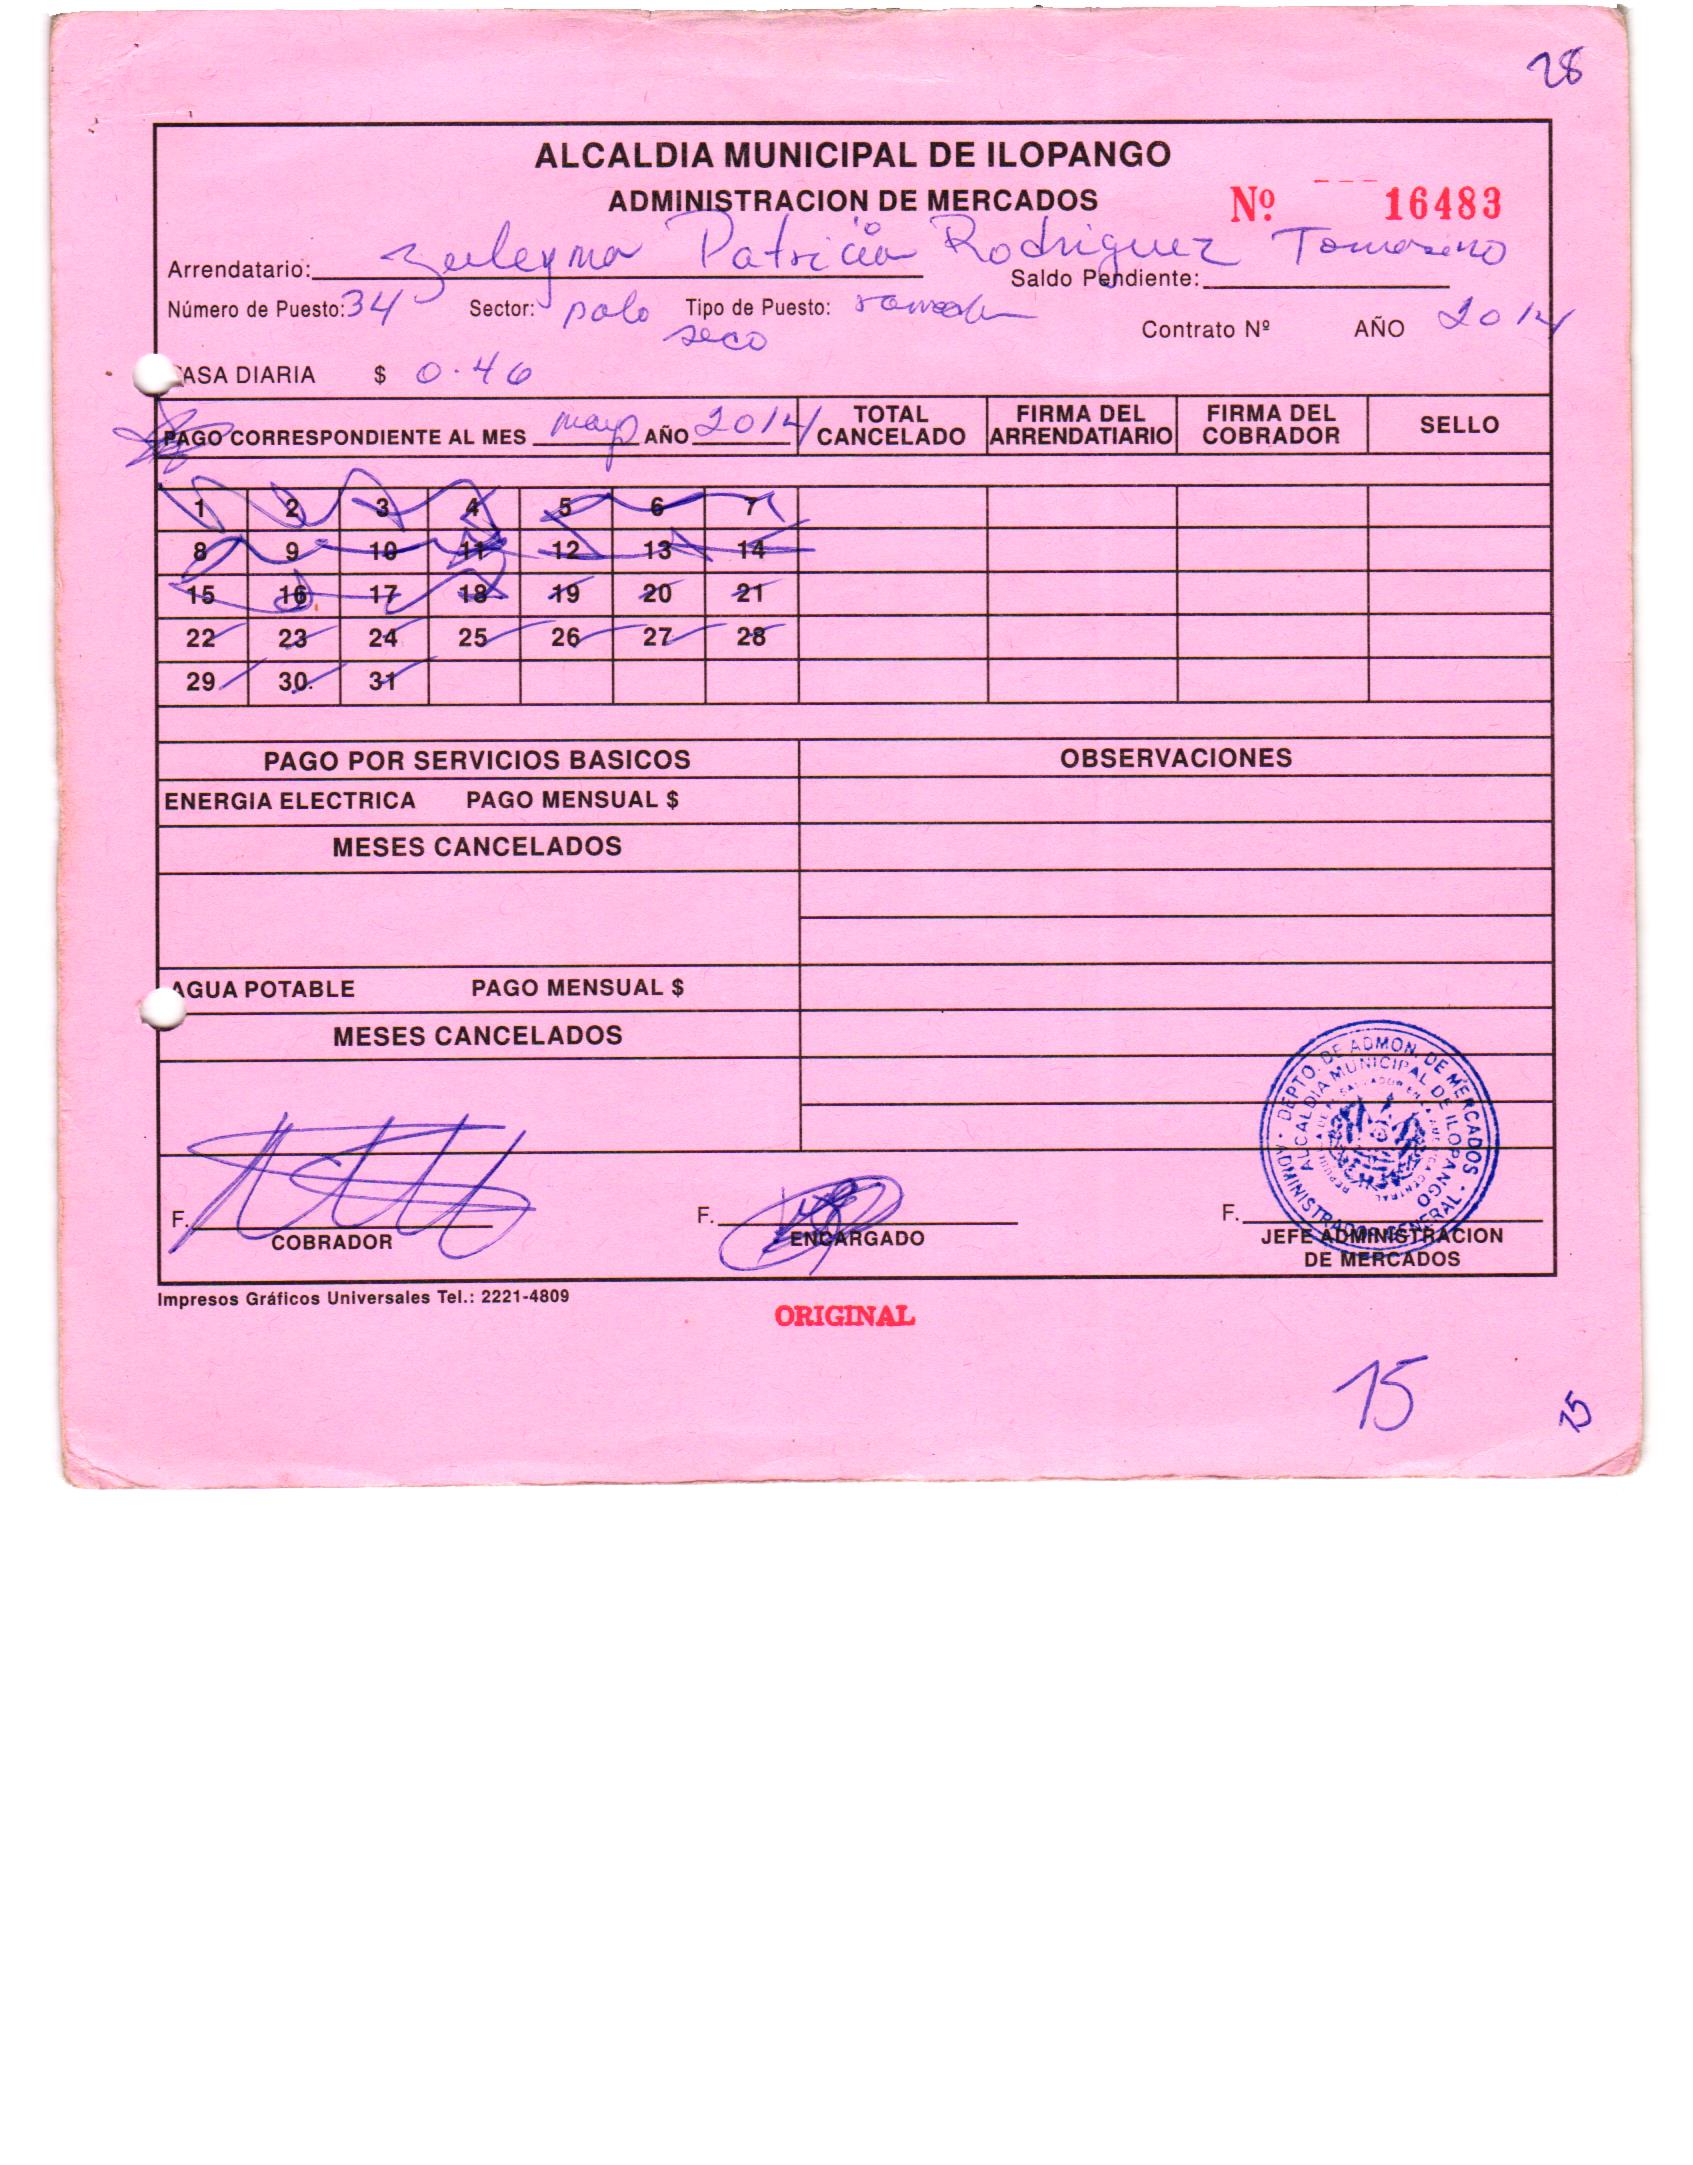 28
ALCALDIA MUNICIPAL DE ILOPANGO
ADMINISTRACION DE MERCADOS
Nº 16483
Arrendatario: Zuleyma Patricia Rodriguez Tomasino
Saldo Pendiente:
Número de Puesto: 34 Sector: palo seco Tipo de Puesto:
Contrato Nº AÑO 2014
ASA DIARIA $ 0.46
PAGO CORRESPONDIENTE AL MES mayo AÑO 2014 TOTAL CANCELADO FIRMA DEL ARRENDATIARIO FIRMA DEL COBRADOR SELLO
1 2 3 4 5 6 7
8 9 10 11 12 13 14
15 16 17 18 19 20 21
22 23 24 25 26 27 28
29 30 31
PAGO POR SERVICIOS BASICOS OBSERVACIONES
ENERGIA ELECTRICA PAGO MENSUAL $
MESES CANCELADOS
AGUA POTABLE PAGO MENSUAL $
MESES CANCELADOS
DEPTO. DE ADMON. DE MERCADOS
ALCALDIA MUNICIPAL DE ILOPANGO
ADMINISTRADOR GENERAL
F. F. F.
COBRADOR ENCARGADO JEFE ADMINISTRACION
DE MERCADOS
Impresos Gráficos Universales Tel.: 2221-4809
ORIGINAL
15
15